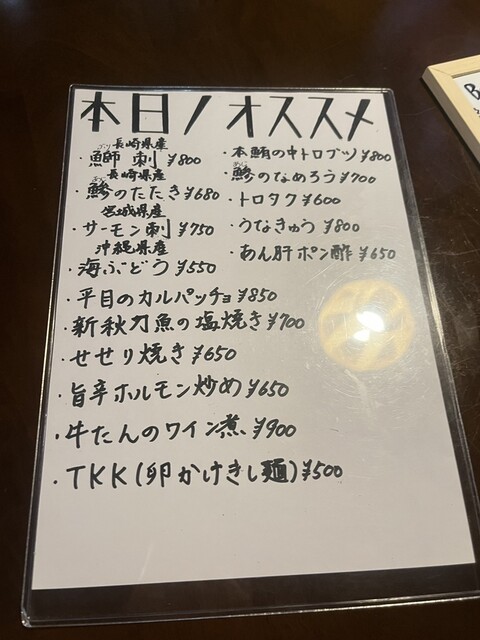 本日ノオススメ
長崎県産
ぶり
・鰤 刺 ¥800
長崎県産
あじ
・鯵のたたき ¥680
宮城県産
・サーモン刺 ¥750
沖縄県産
・海ぶどう ¥550
・平目のカルパッチョ ¥850
・新秋刀魚の塩焼き ¥700
・せせり焼き ¥650
・旨辛ホルモン炒め ¥650
・牛たんのワイン煮 ¥900
・TKK(卵かけきし麺) ¥500
・本鮪の中トロブツ ¥800
あじ
・鯵のなめろう ¥700
・トロタク ¥600
・うなきゅう ¥800
・あん肝ポン酢 ¥650